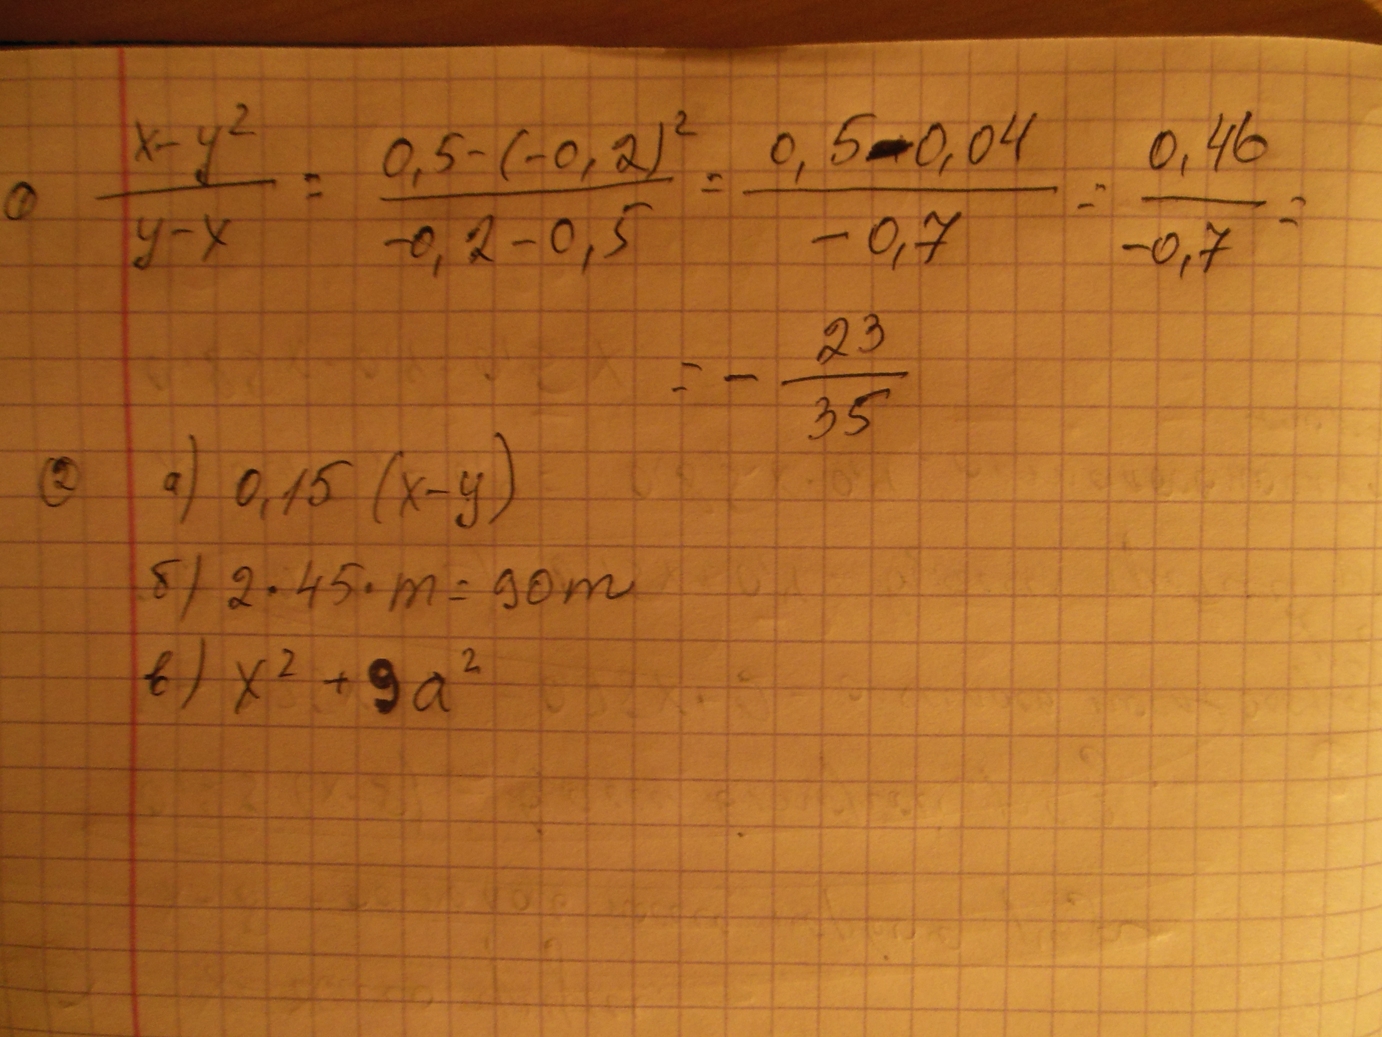 ① (x-y²)/(y-x) = (0,5-(-0,2)²)/(-0,2-0,5) = (0,5-0,04)/(-0,7) = 0,46/(-0,7) =
= - 23/35
② а) 0,15 (x-y)
б) 2·45·m = 90m
в) x² + 9a²